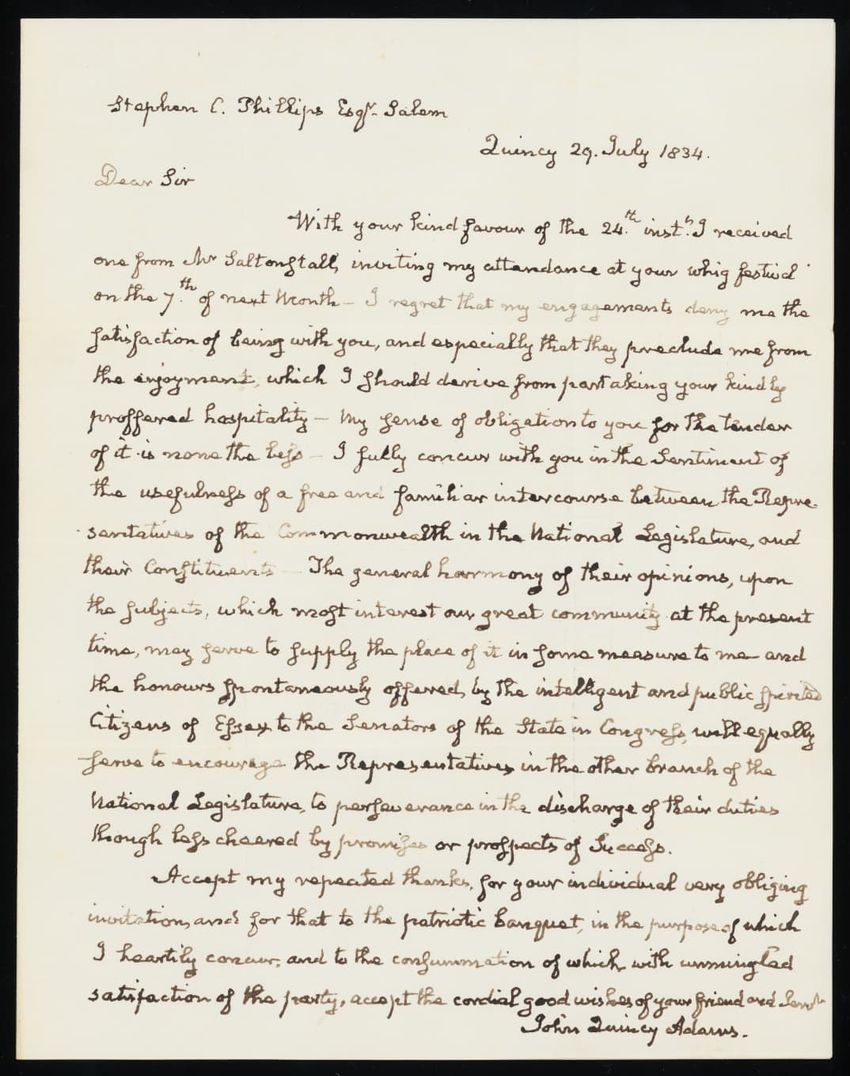 Stephen C. Phillips Esqr. Salem
Quincy 29. July 1834.
Dear Sir
With your kind favour of the 24th. inst.t I received
one from Mr Saltonstall, inviting my attendance at your whig festival
on the 7th. of next Month — I regret that my engagements deny me the
satisfaction of being with you, and especially that they preclude me from
the enjoyment, which I should derive from partaking your kindly
proffered hospitality — My sense of obligation to you for the tender
of it is none the less — I fully concur with you in the Sentiment of
the usefulness of a free and familiar intercourse between the Repre-
sentatives of the Commonwealth in the National Legislature, and
their Constituents — The general harmony of their opinions, upon
the subjects, which most interest our great community at the present
time, may serve to supply the place of it in some measure to me — and
the honours spontaneously offered, by the intelligent and public spirited
Citizens of Essex to the Senators of the State in Congress, will equally
serve to encourage the Representatives in the other branch of the
National Legislature, to perseverance in the discharge of their duties
though less cheered by promises or prospects of Success.
Accept my repeated thanks, for your individual very obliging
invitation, and for that to the patriotic banquet, in the purpose of which
I heartily concur, and to the consummation of which, with unmingled
satisfaction of the party, accept the cordial good wishes of your friend and Servt
John Quincy Adams.